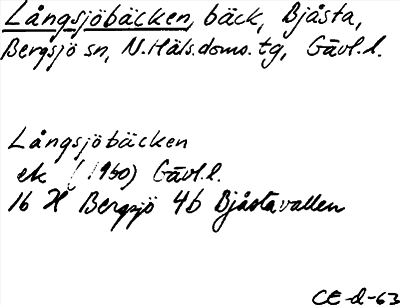 Långsjöbäcken, bäck, Bjåsta,
Bergsjö sn, N.Häls.doms.tg, Gävl.l.
Långsjöbäcken
ek (1950) Gävl.l.
16 H Bergsjö 4b Bjåstavallen
CE-d-63